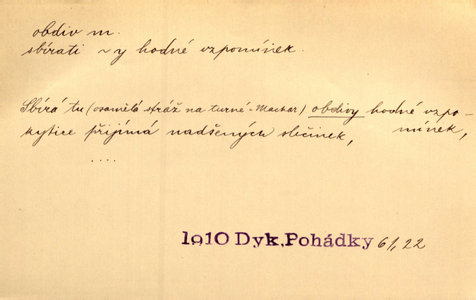 obdiv m.
sbírati ~y hodné vzpomínek.
Sbírá tu (osamělá stráž na turné - Machar) obdivy hodné vzpo-
mínek,
kytice přijímá nadšených slečinek,
....
1910 Dyk, Pohádky 61, 22